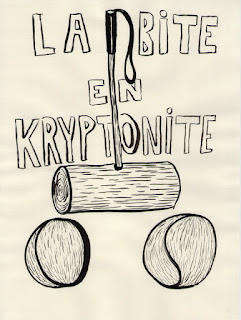 LA BITE
EN
KRYPTONITE